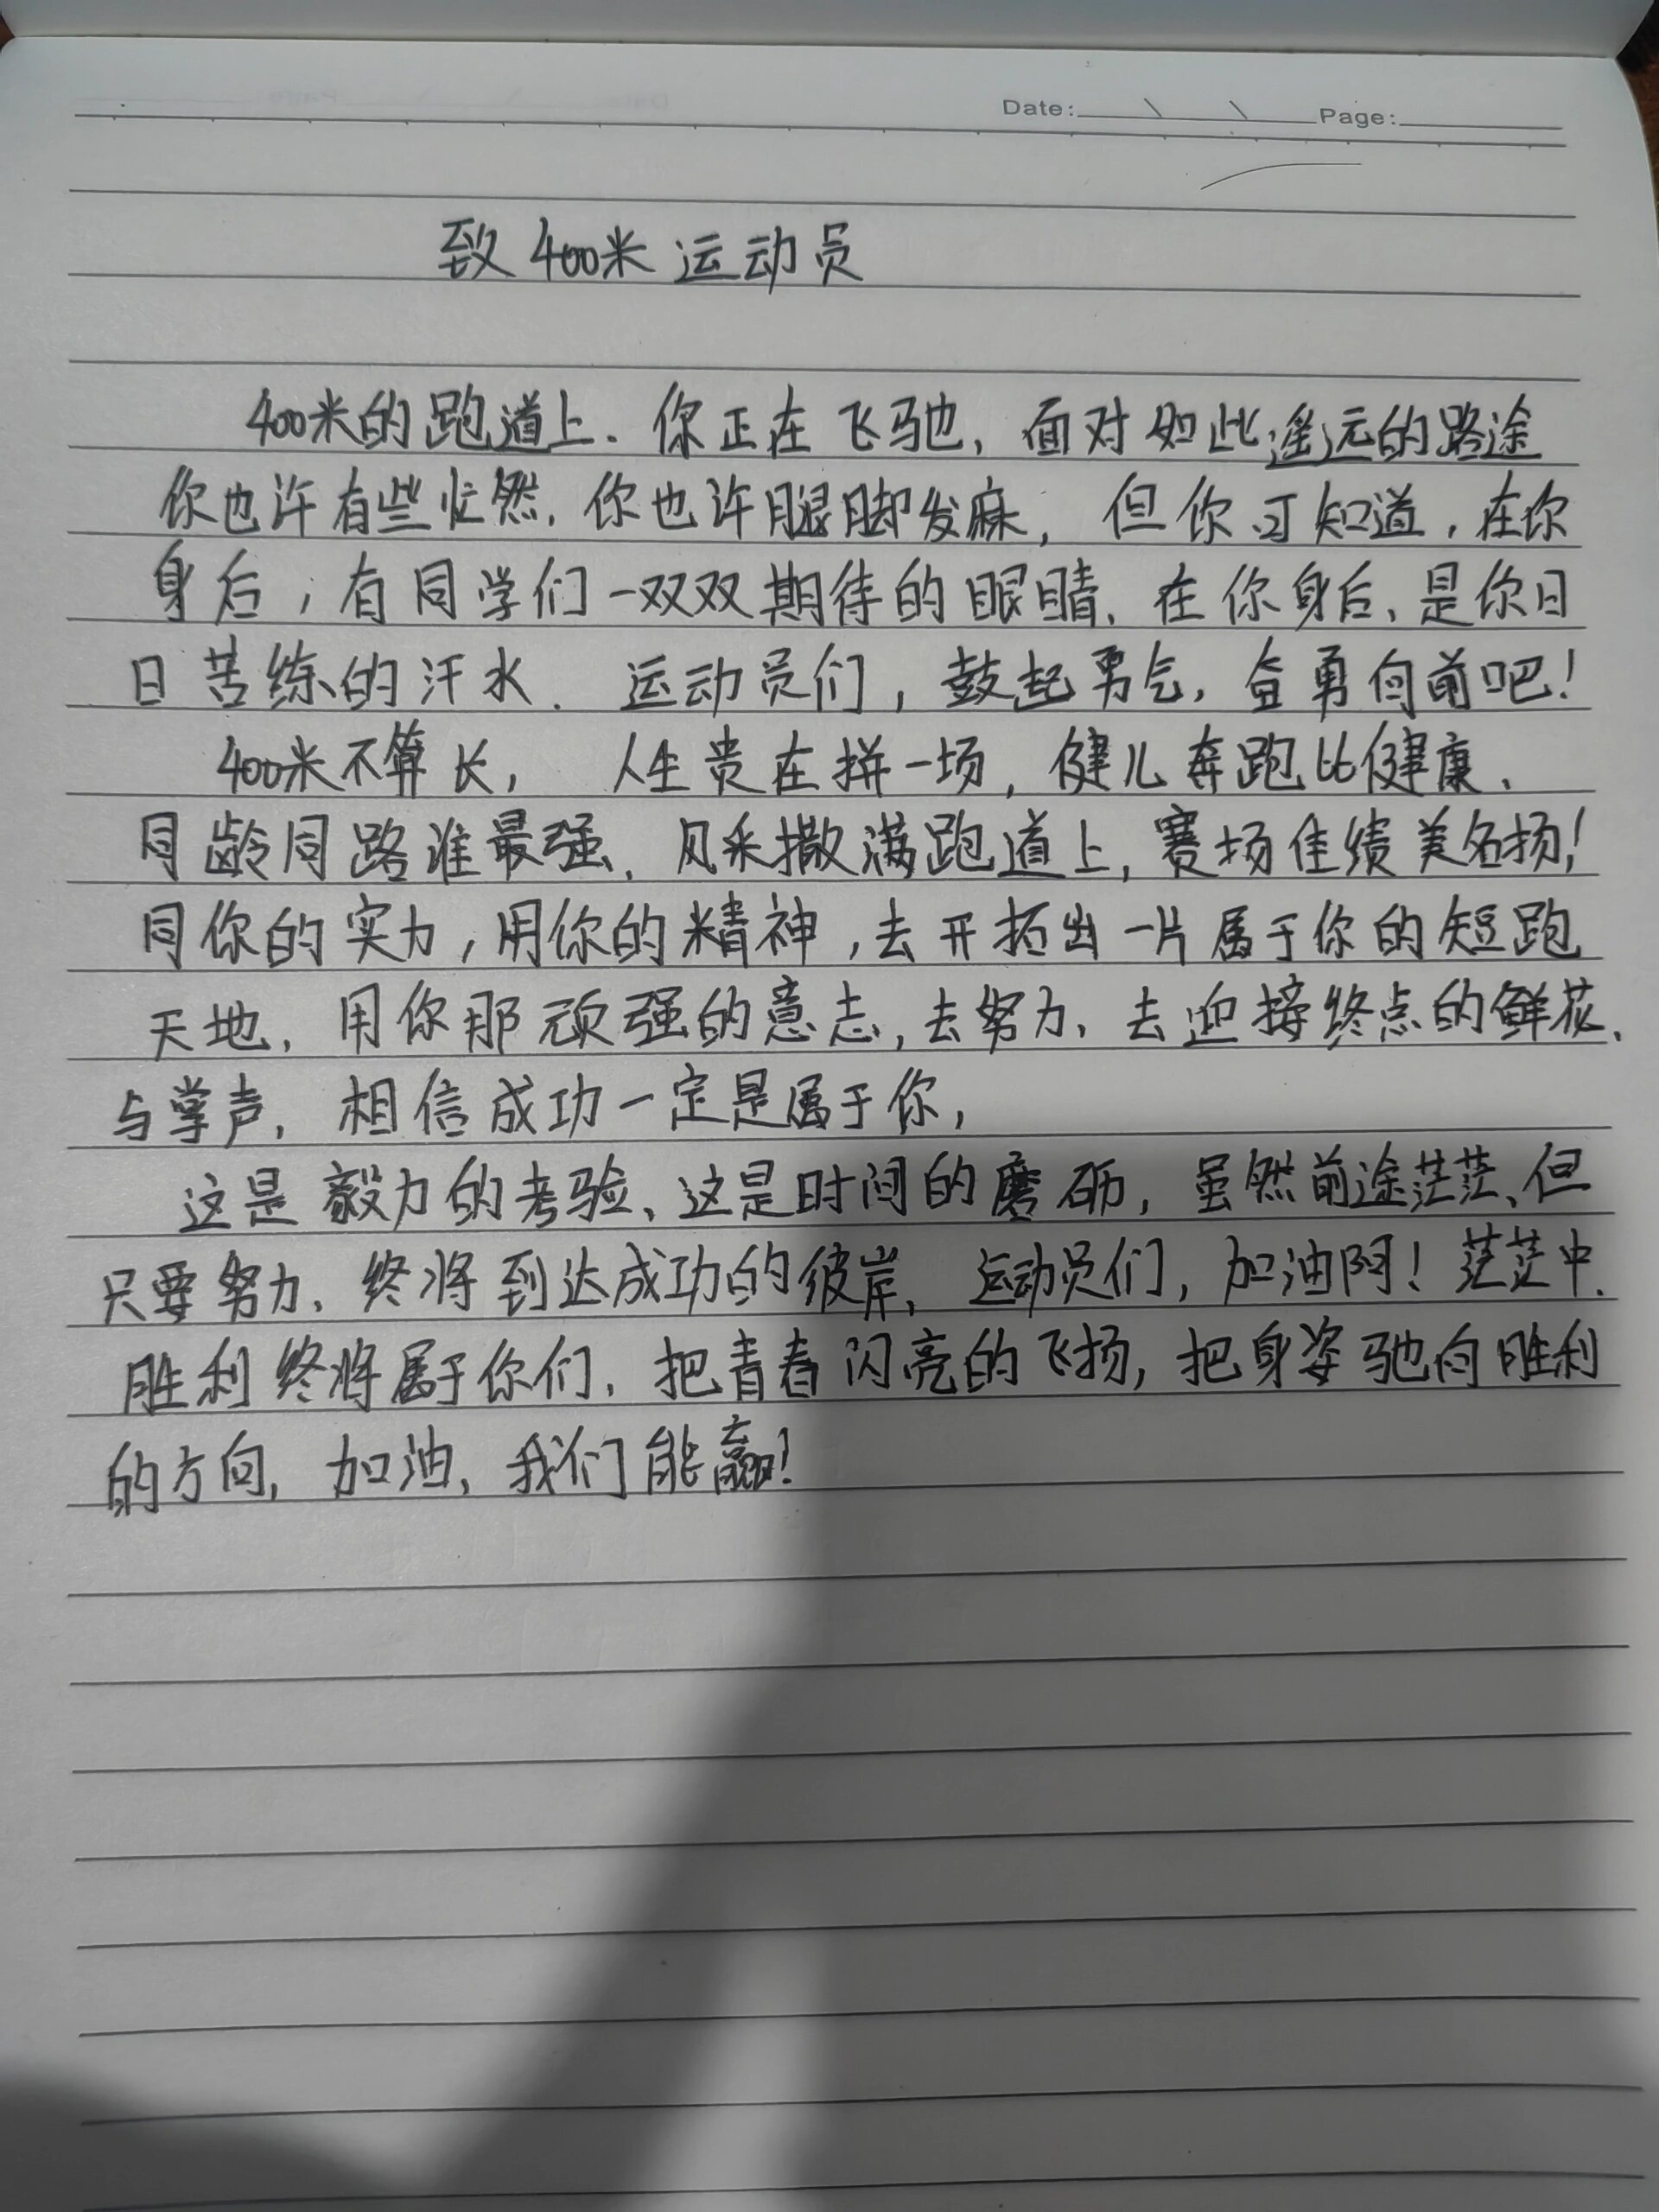 Date: \ \ Page:
致400米运动员
400米的跑道上.你正在飞驰,面对如此遥远的路途
你也许有些忙然.你也许腿脚发麻,但你可知道,在你
身后,有同学们一双双期待的眼睛.在你身后、是你日
日苦练的汗水.运动员们,鼓起勇气,奋勇向前吧!
400米不算长,人生贵在拼一场,健儿奔跑比健康、
同龄同路谁最强、风采撒满跑道上,赛场佳绩美名扬!
同你的实力,用你的精神,去开拓出一片属于你的短跑
天地,用你那顽强的意志,去努力,去迎接终点的鲜花、
与掌声,相信成功一定是属于你,
这是毅力的考验、这是时间的磨砺,虽然前途茫茫、但
只要努力、终将到达成功的彼岸,运动员们,加油阿!茫茫中.
胜利终将属于你们.把青春闪亮的飞扬,把身姿驰向胜利
的方向,加油,我们能赢!